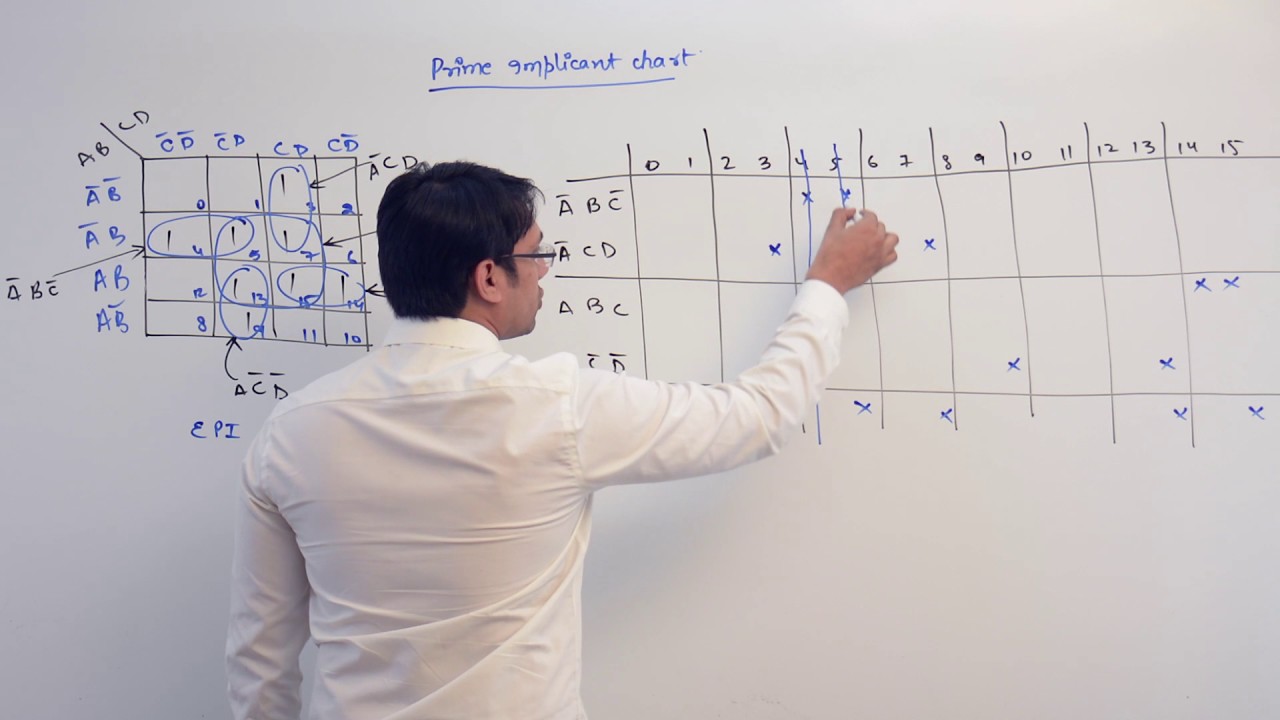 Prime Implicant chart
CD
AB
C̅D̅ C̅D CD CD̅
A̅CD
A̅B̅ 1
0 1 3 2
A̅B 1 1 1
4 5 7 6
A̅BC̅
AB 1 1 1
12 13 15 14
AB̅ 1
8 9 11 10
AC̅D̅
EPI
0 1 2 3 4 5 6 7 8 9 10 11 12 13 14 15
A̅BC̅ x x
A̅CD x x
ABC x x
C̅D̅ x x
x x x x